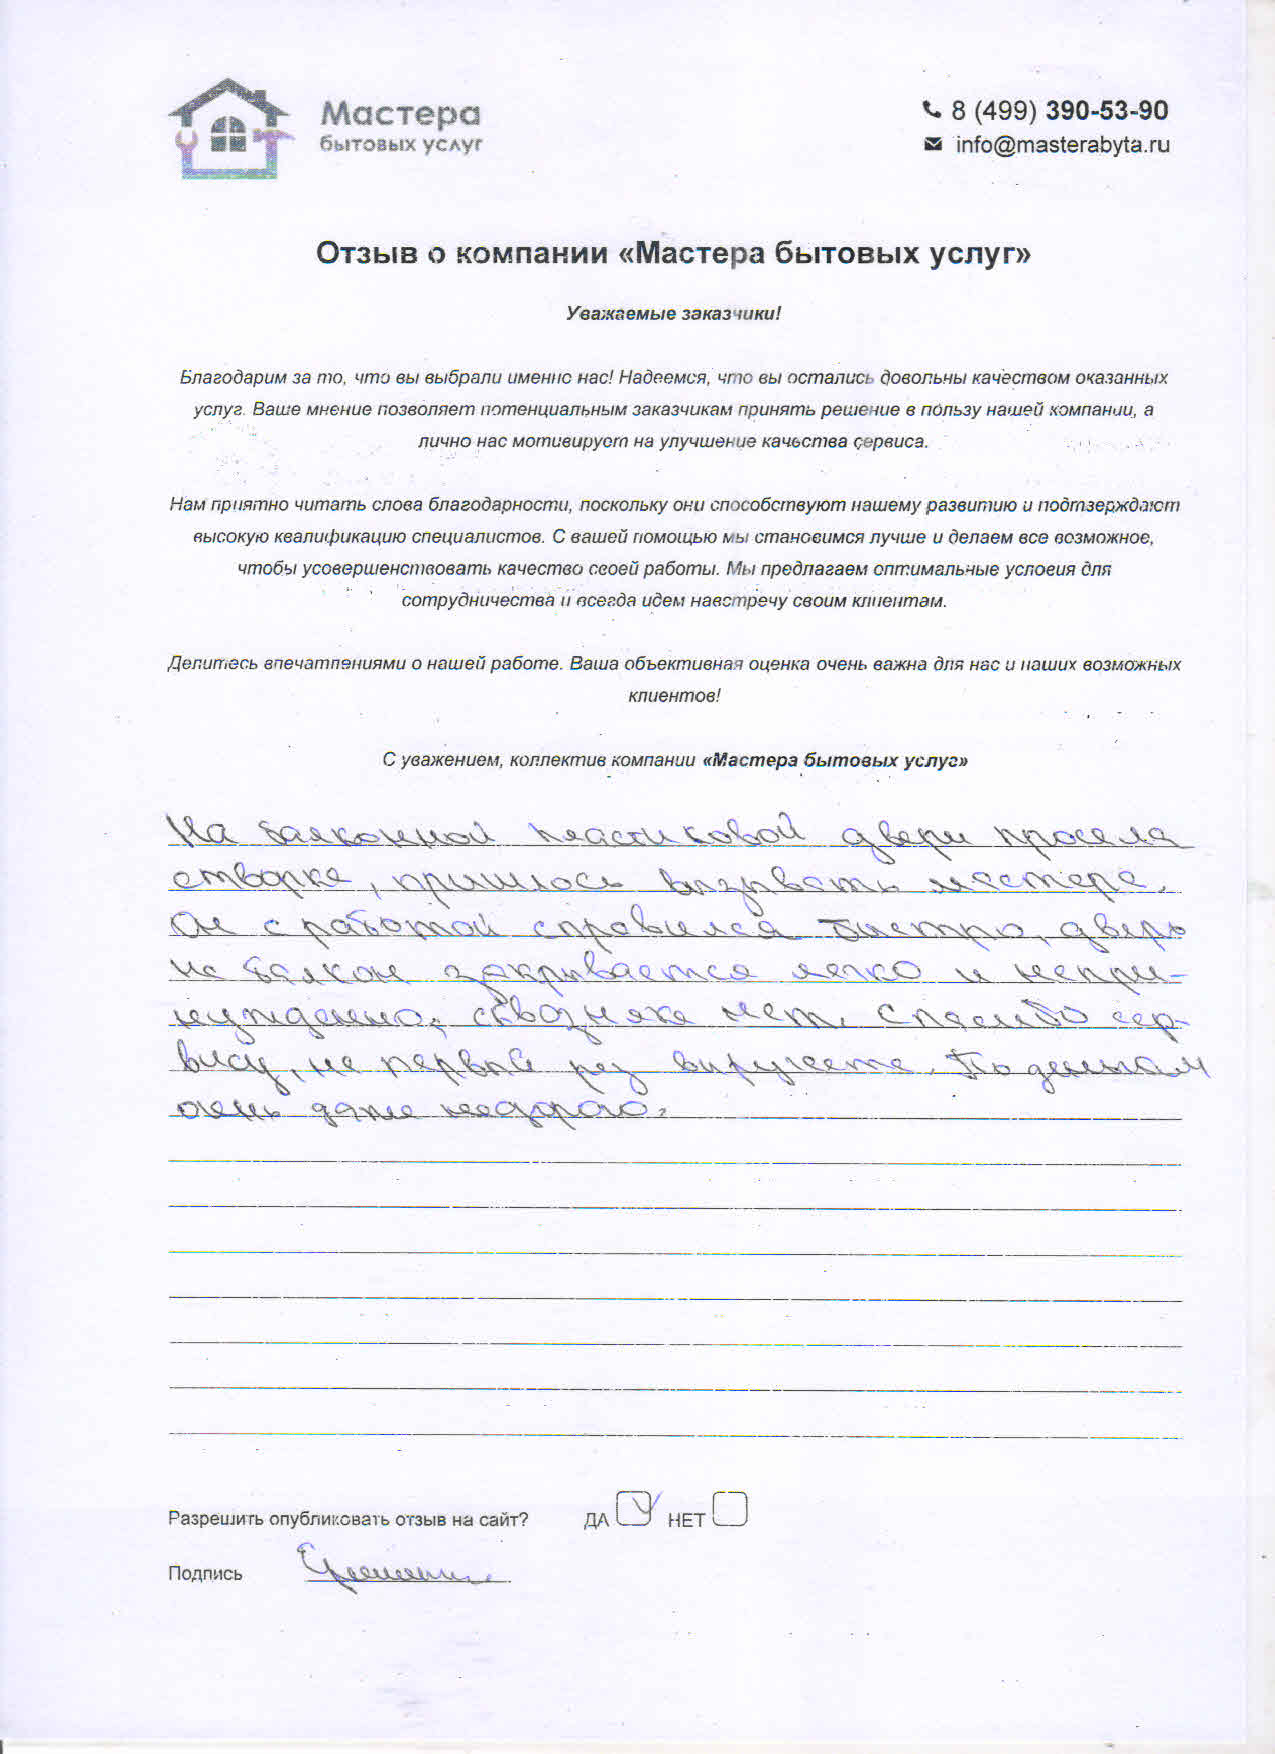 Мастера
бытовых услуг
8 (499) 390-53-90
info@masterabyta.ru
Отзыв о компании «Мастера бытовых услуг»
Уважаемые заказчики!
Благодарим за то, что вы выбрали именно нас! Надеемся, что вы остались довольны качеством оказанных
услуг. Ваше мнение позволяет потенциальным заказчикам принять решение в пользу нашей компании, а
лично нас мотивирует на улучшение качества сервиса.
Нам приятно читать слова благодарности, поскольку они способствуют нашему развитию и подтверждают
высокую квалификацию специалистов. С вашей помощью мы становимся лучше и делаем все возможное,
чтобы усовершенствовать качество своей работы. Мы предлагаем оптимальные условия для
сотрудничества и всегда идем навстречу своим клиентам.
Делитесь впечатлениями о нашей работе. Ваша объективная оценка очень важна для нас и наших возможных
клиентов!
С уважением, коллектив компании «Мастера бытовых услуг»
На балконной пластиковой двери просела
створка, пришлось вызывать мастера.
Он с работой справился быстро, дверь
на балкон закрывается легко и непри-
нужденно, сквозняка нет. Спасибо сер-
вису, не первый раз выручаете. По деньгам
очень даже недорого.
Разрешить опубликовать отзыв на сайт? ДА НЕТ
Подпись